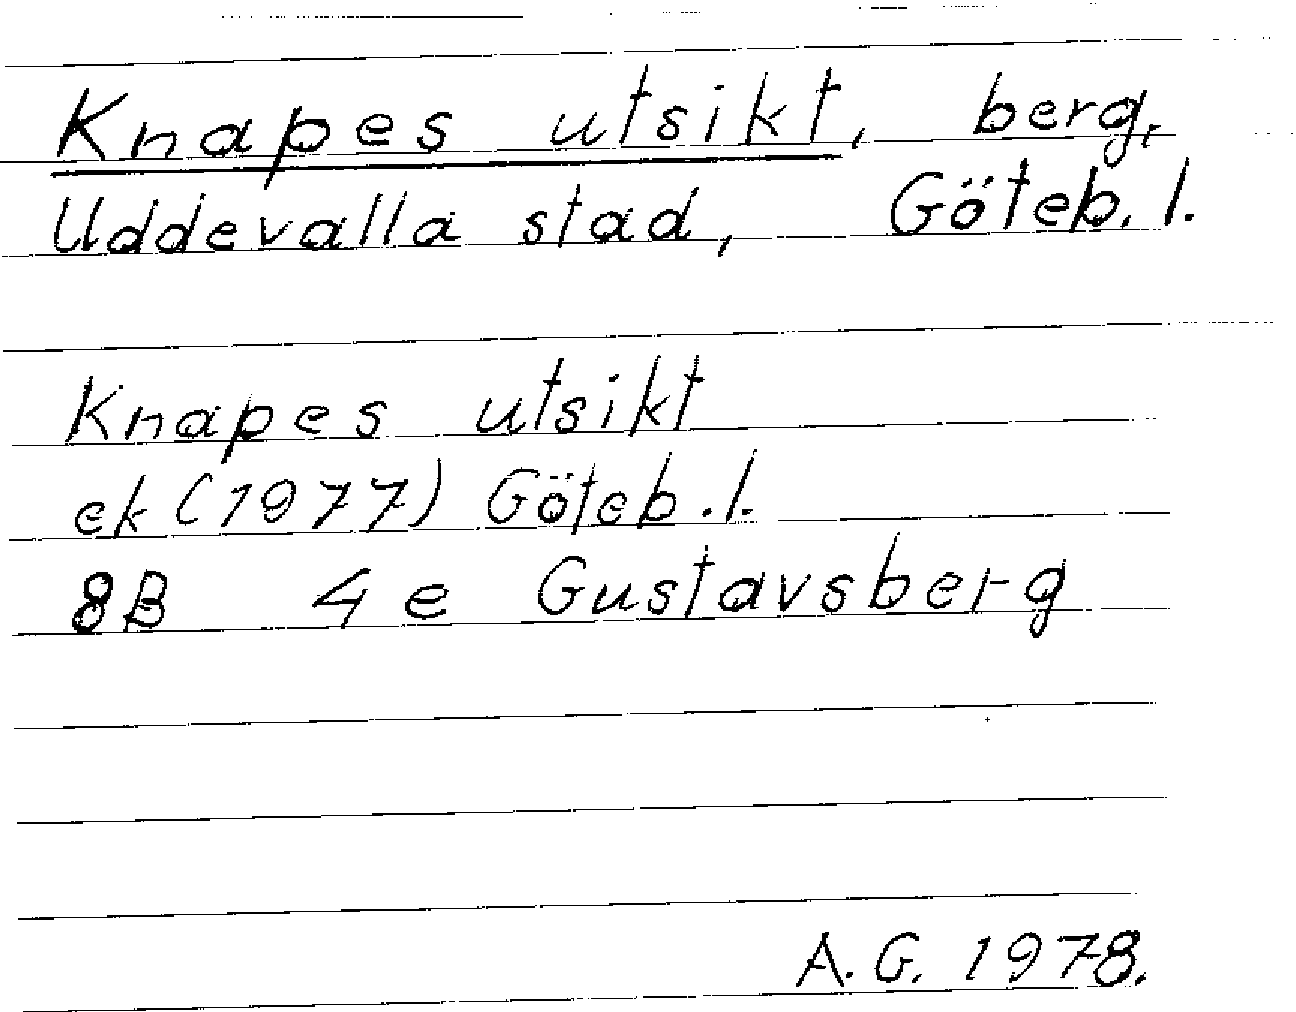 Knapes utsikt, berg,
Uddevalla stad, Göteb. l.
Knapes utsikt
ek (1977) Göteb. l.
8B 4e Gustavsberg
A. G. 1978.